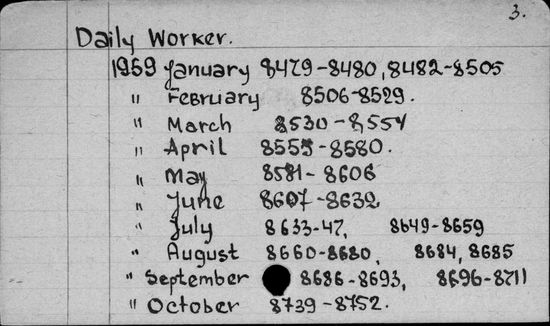 3.
Daily Worker.
1959 January 8479-8480, 8482-8505
" February 8506-8529.
" March 8530-8554
" April 8555-8580.
" May 8581-8606
" June 8607-8632
" July 8633-47, 8649-8659
" August 8660-8680, 8684, 8685
" September 8686-8693, 8696-8711
" October 8739-8752.